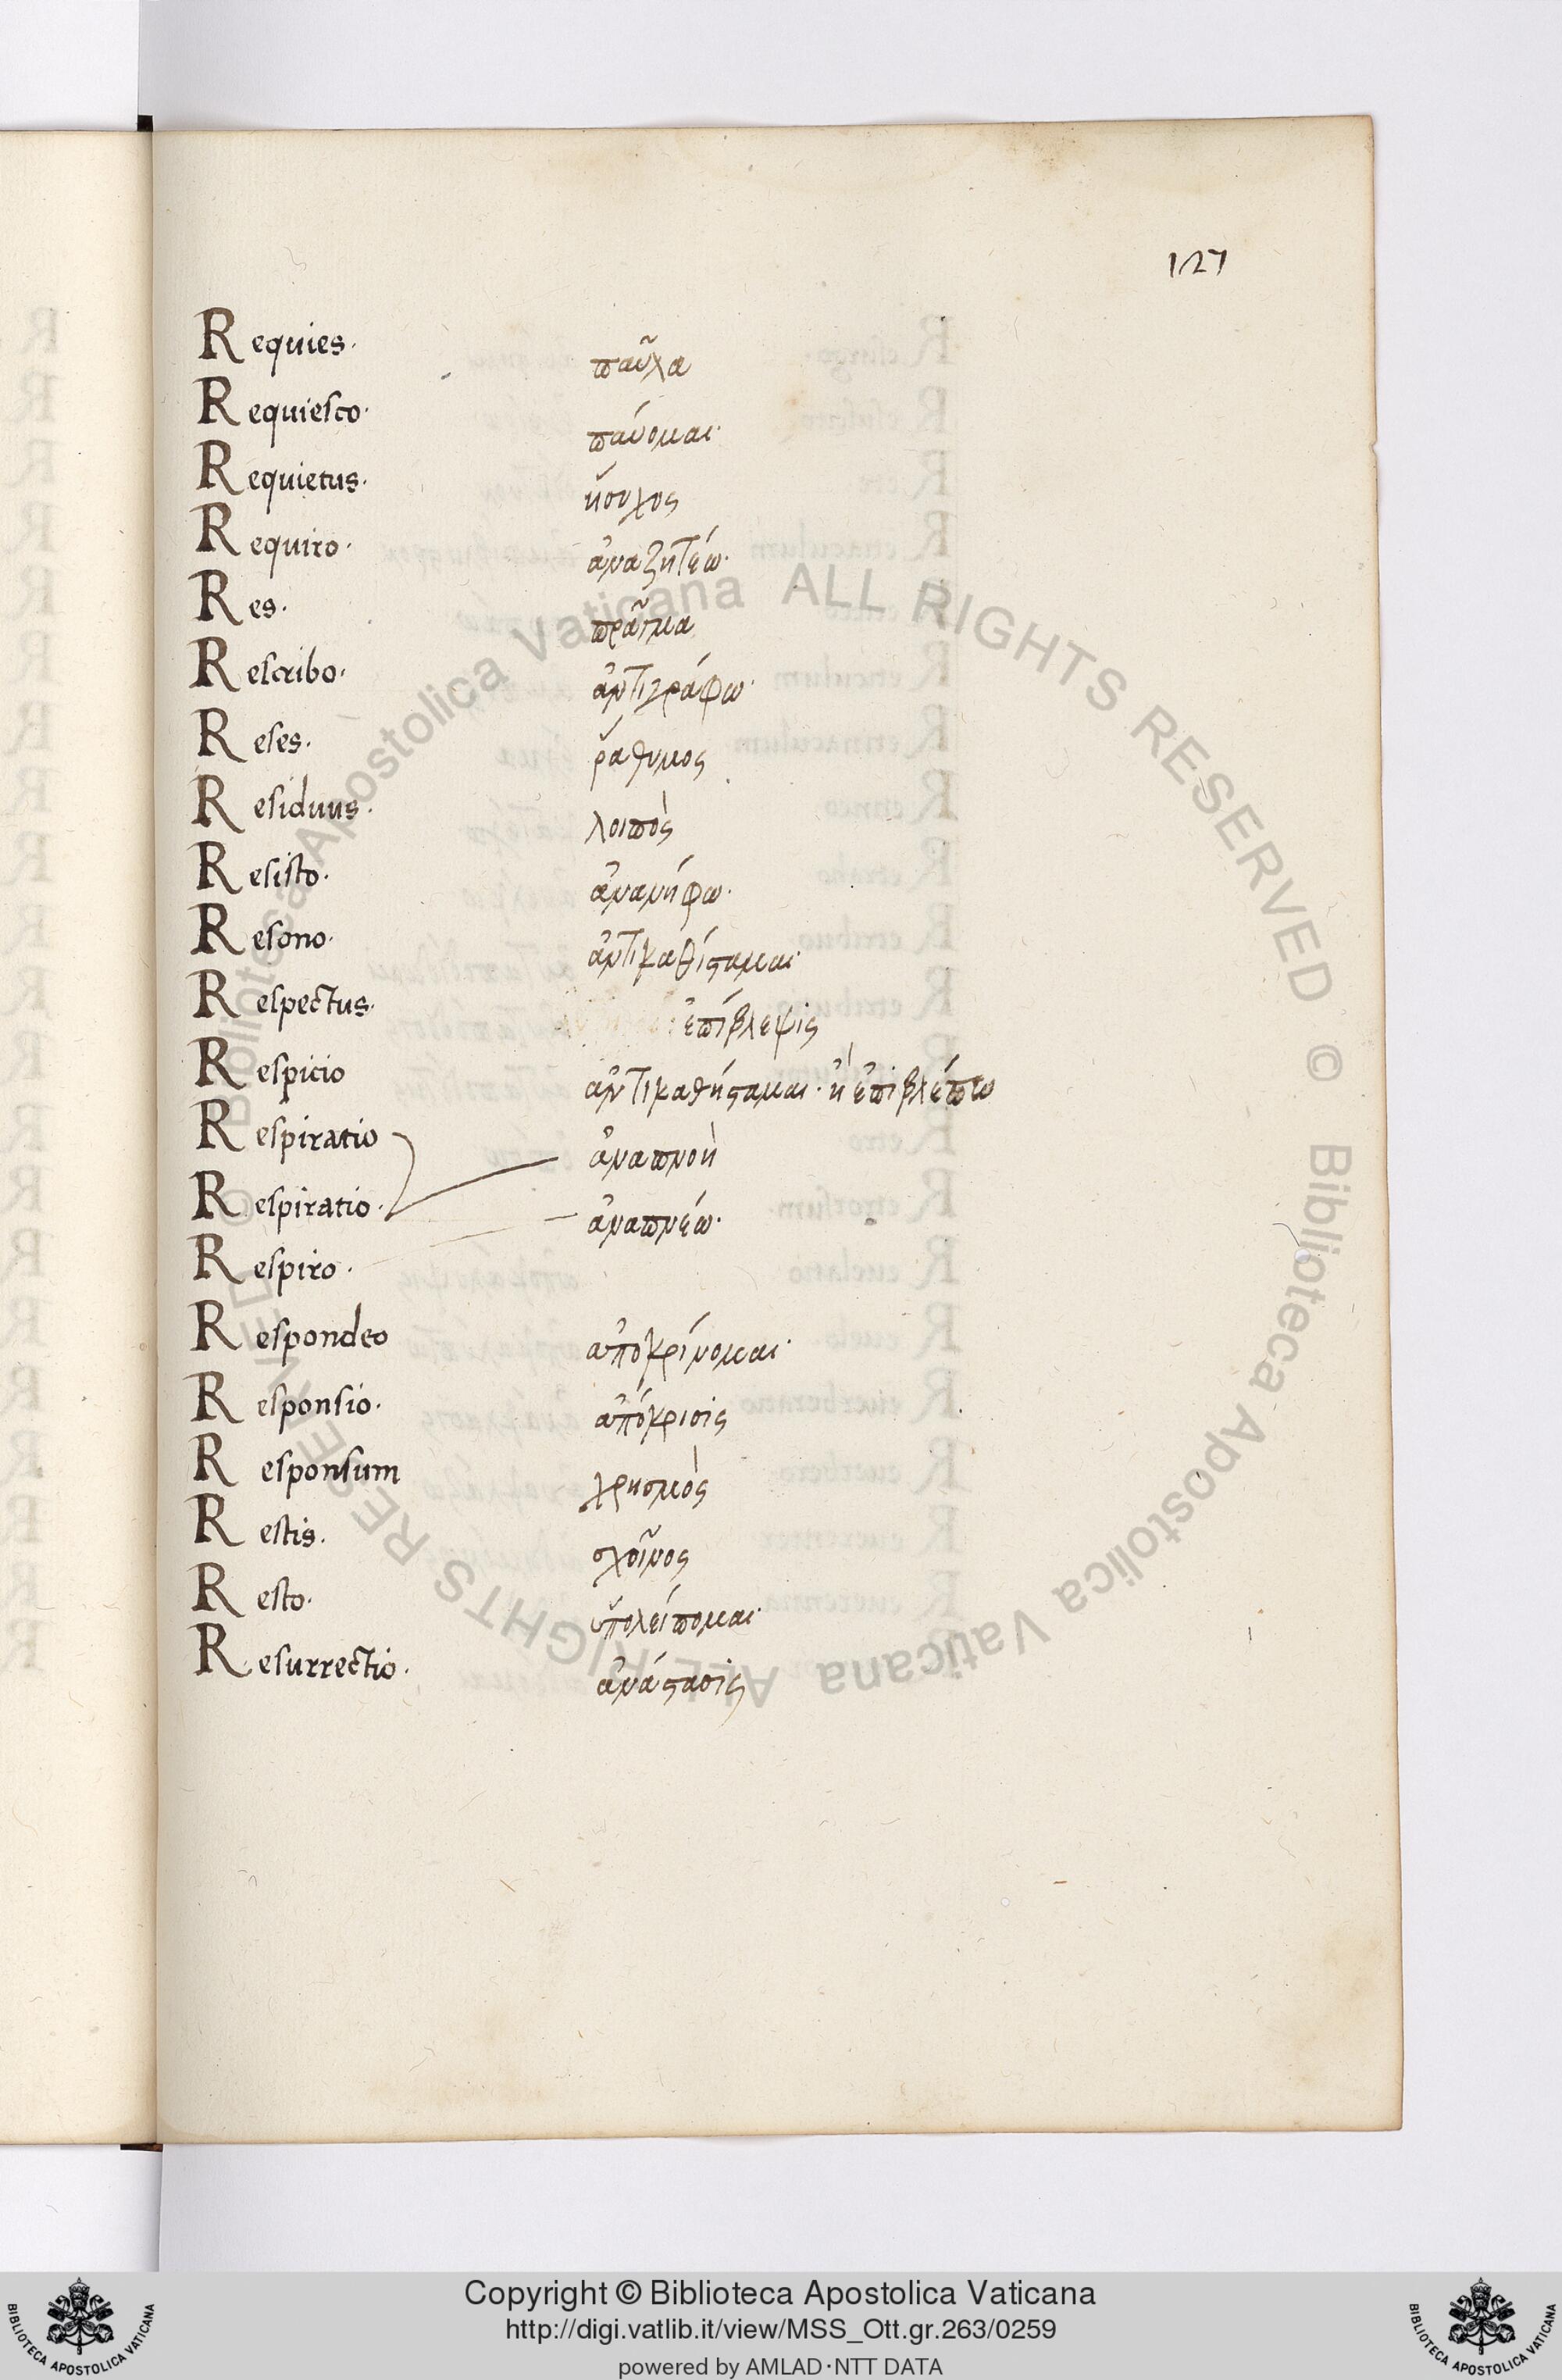 127
Requies· παῦλα
Requiesco· παύομαι·
Requietus· ἥσυχος
Requiro· ἀναζητέω·
Res· πρᾶγμα
Rescribo· ἀντιγράφω·
Reses· ῥάθυμος
Residuus· λοιπὸς
Resisto· ἀνανήφω·
Resono· ἀντικαθίσταμαι·
Respectus· ἐπίβλεψις
Respicio ἀντικαθήσταμαι· ἢ ἐπιβλέπω
Respiratio ἀναπνοὴ
Respiratio· ἀναπνέω·
Respiro·
Respondeo ἀποκρίνομαι·
Responsio· ἀπόκρισις
Responsum χρησμὸς
Restis· σχοῖνος
Resto· ὑπολείπομαι·
Resurrectio· ἀνάστασις
Biblioteca Apostolica Vaticana ALL RIGHTS RESERVED ©
Biblioteca Apostolica Vaticana ALL RIGHTS RESERVED ©
Copyright © Biblioteca Apostolica Vaticana
http://digi.vatlib.it/view/MSS_Ott.gr.263/0259
powered by AMLAD·NTT DATA
BIBLIOTECA APOSTOLICA VATICANA
BIBLIOTECA APOSTOLICA VATICANA